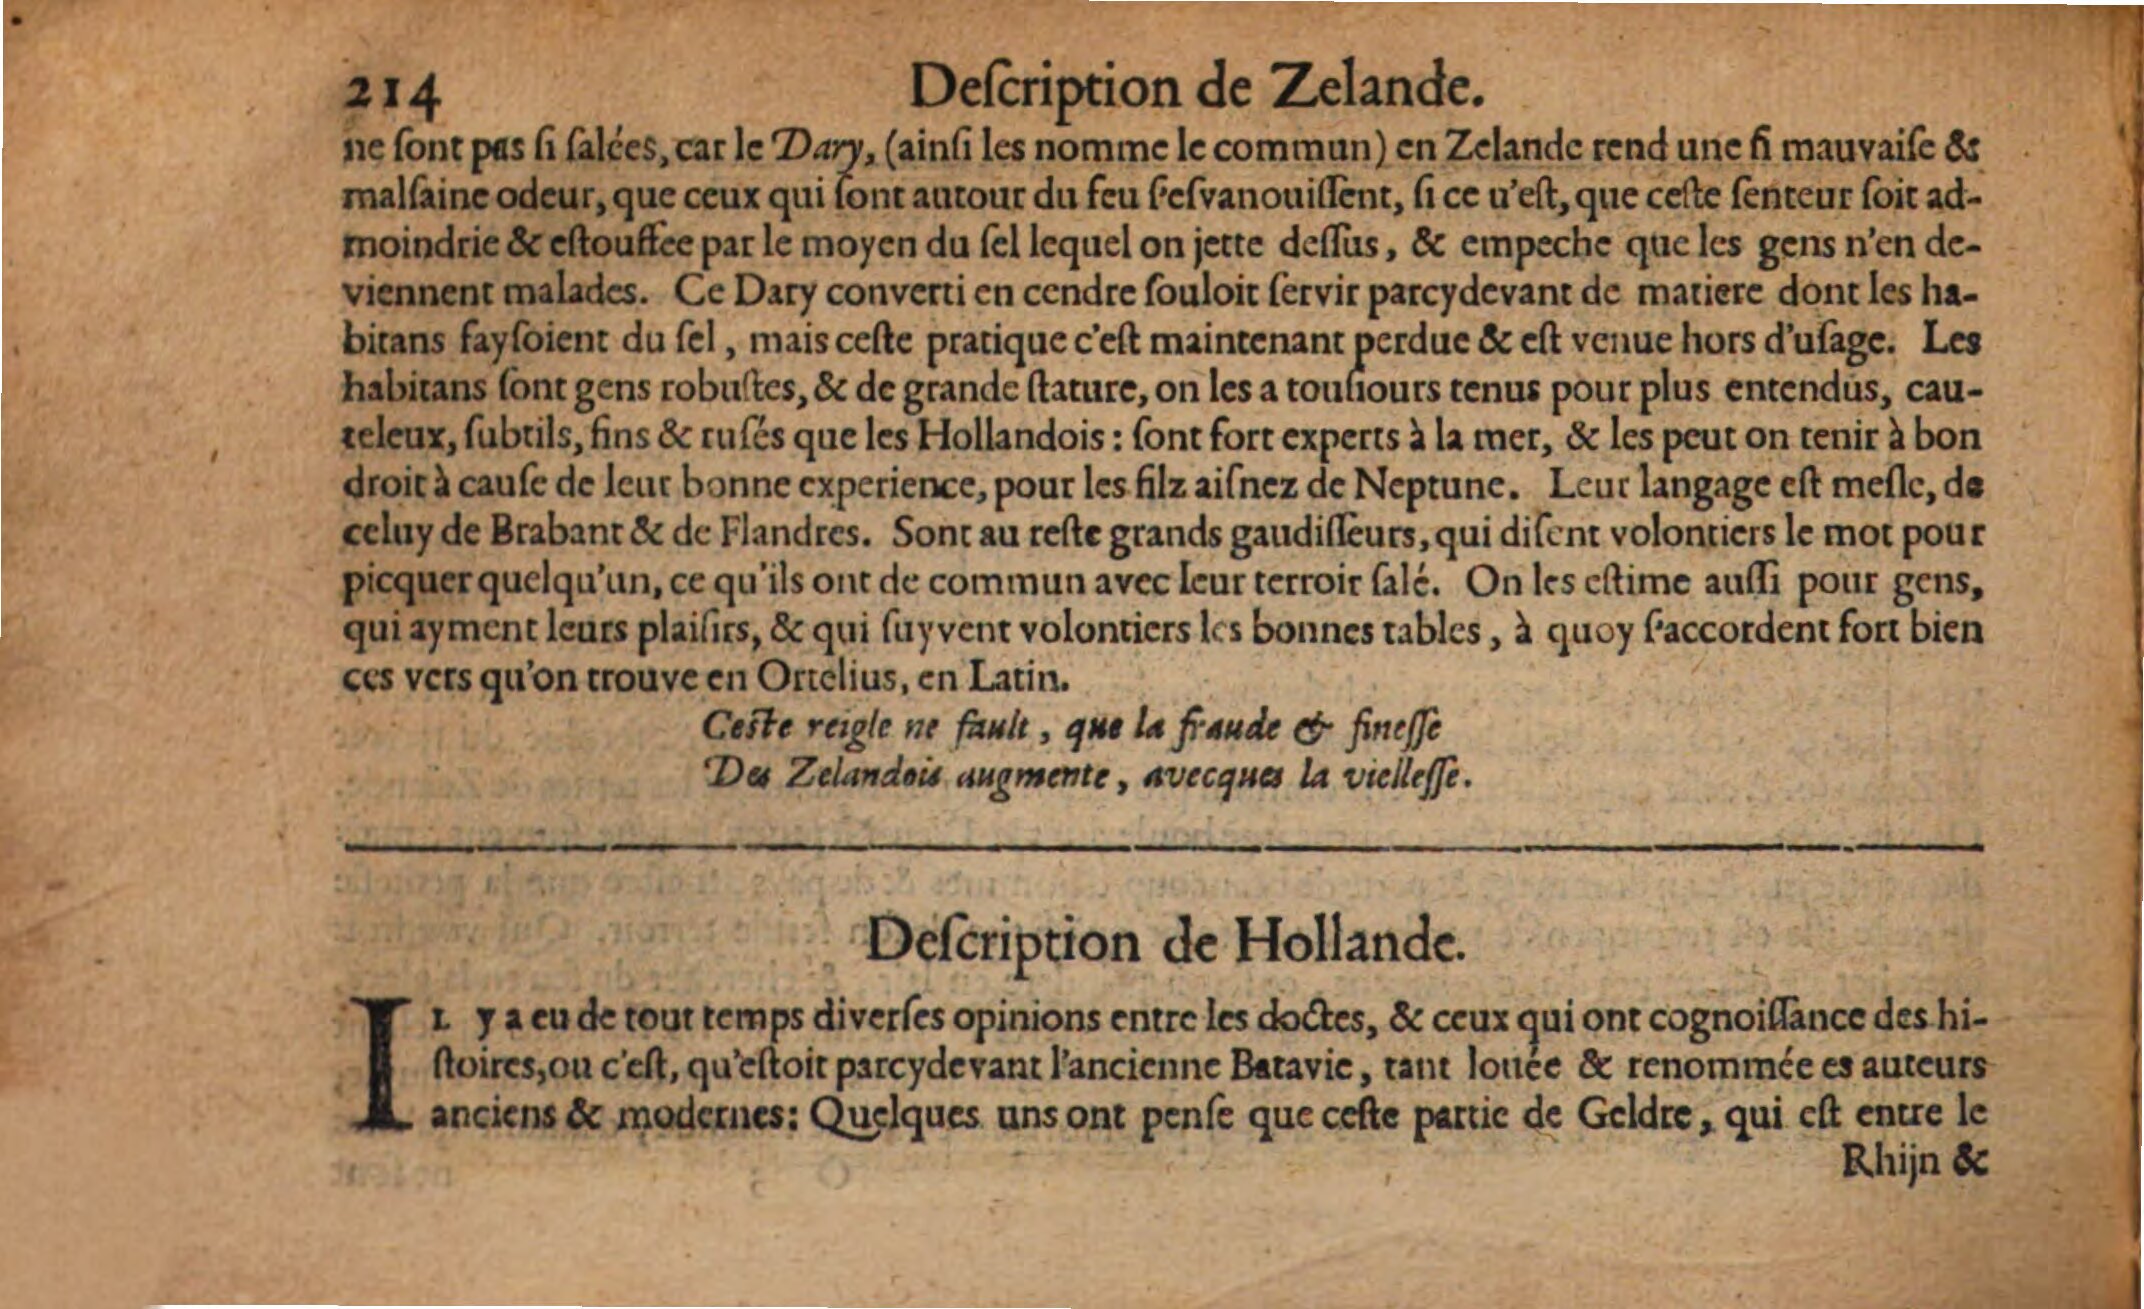 214 Deſcription de Zelande.
ne ſont pas ſi ſalées, car le Dary, (ainſi les nomme le commun) en Zelande rend une ſi mauvaiſe &
malſaine odeur, que ceux qui ſont autour du feu ſ'eſvanouiſſent, ſi ce u'eſt, que ceſte ſenteur ſoit ad-
moindrie & eſtouffee par le moyen du ſel lequel on jette deſſus, & empeche que les gens n'en de-
viennent malades. Ce Dary converti en cendre ſouloit ſervir parcydevant de matiere dont les ha-
bitans fayſoient du ſel, mais ceſte pratique c'eſt maintenant perdue & eſt venue hors d'uſage. Les
habitans ſont gens robuſtes, & de grande ſtature, on les a touſiours tenus pour plus entendus, cau-
teleux, ſubtils, fins & ruſés que les Hollandois: ſont fort experts à la mer, & les peut on tenir à bon
droit à cauſe de leur bonne experience, pour les filz aiſnez de Neptune. Leur langage eſt meſle, de
celuy de Brabant & de Flandres. Sont au reſte grands gaudiſſeurs, qui diſent volontiers le mot pour
picquer quelqu'un, ce qu'ils ont de commun avec leur terroir ſalé. On les eſtime auſſi pour gens,
qui ayment leurs plaiſirs, & qui ſuyvent volontiers les bonnes tables, à quoy ſ'accordent fort bien
ces vers qu'on trouve en Ortelius, en Latin.
Ceſte reigle ne fault, que la fraude & fineſſe
Des Zelandois augmente, avecques la vielleſſe.
Deſcription de Hollande.
IL y a eu de tout temps diverſes opinions entre les doctes, & ceux qui ont cognoiſſance des hi-
ſtoires, ou c'eſt, qu'eſtoit parcydevant l'ancienne Batavie, tant louée & renommée es auteurs
anciens & modernes: Quelques uns ont penſe que ceſte partie de Geldre, qui eſt entre le
Rhijn &